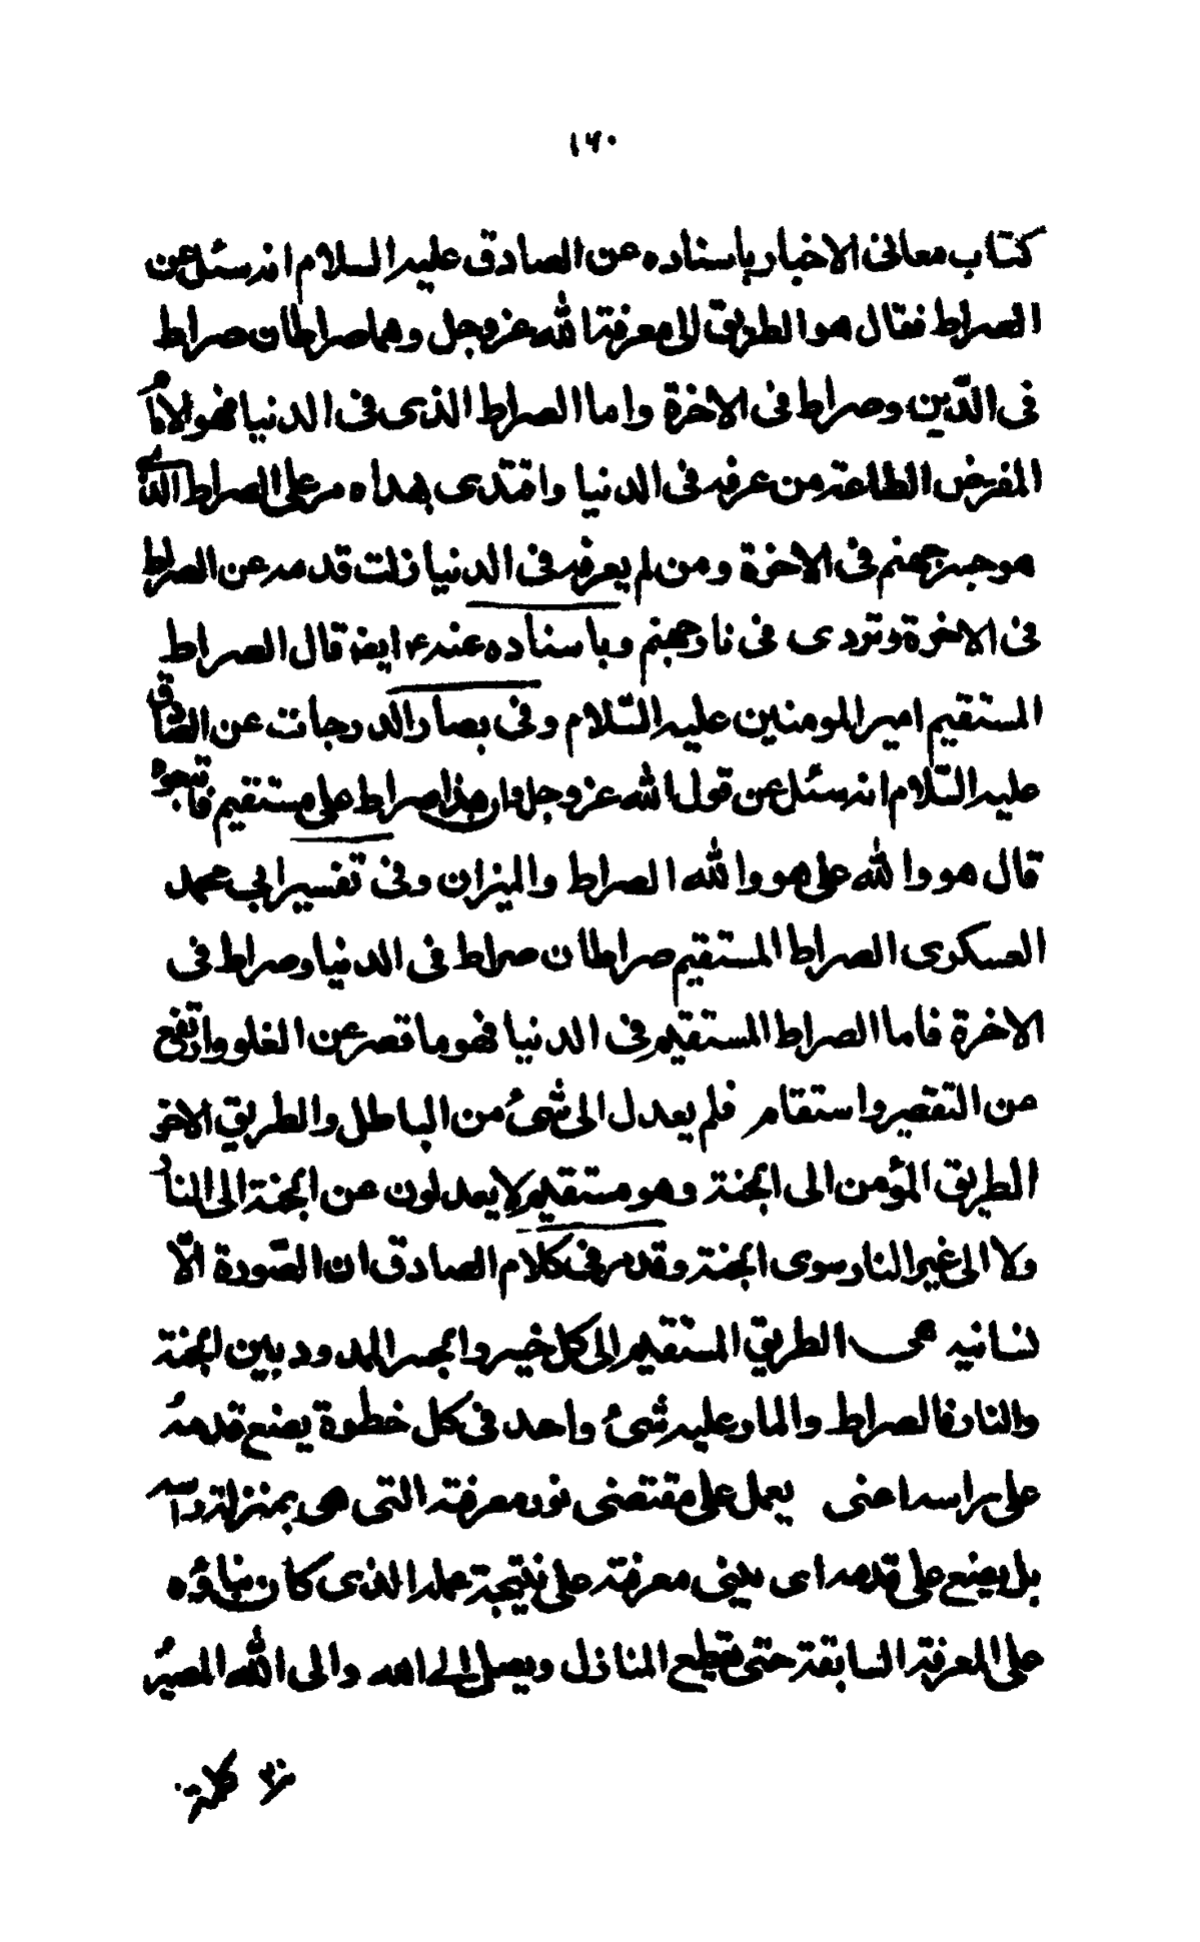 ١٦٠
كتاب معانى الاخبار باسناده عن الصادق عليه السلام انه سئل عن
الصراط فقال هو الطريق الى معرفة الله عز وجل وهما صراطان صراط
فى الدّين وصراط فى الاخرة واما الصراط الذى فى الدنيا فهو الامام
المفترض الطاعة من عرفه فى الدنيا واقتدى بهداه مر على الصراط الذى
هو جسر جهنم فى الاخرة ومن لم يعرفه فى الدنيا زلت قدمه عن الصراط
فى الاخرة وتردى فى نار جهنم وباسناده عنه ع ايضا قال الصراط
المستقيم امير المومنين عليه السّلام وفى بصائر الدرجات عن الصّادق
عليه السّلام انه سئل عن قول الله عز وجل وان هذا صراط على مستقيم فاتبعوه
قال هو والله على هو والله الصراط والميزان وفى تفسير ابى محمد
العسكرى الصراط المستقيم صراطان صراط فى الدنيا وصراط فى
الاخرة فاما الصراط المستقيم فى الدنيا فهو ما قصر عن الغلو وارتفع
عن التقصير واستقام فلم يعدل الى شىء من الباطل والطريق الاخر
الطريق المؤمن الى الجنة وهو مستقيم لا يعدلون عن الجنة الى النار
ولا الى غير النار سوى الجنة وقد مر فى كلام الصادق ان الصّورة الاّ
نسانيه هى الطريق المستقيم الى كل خير والجسر الممدود بين الجنة
والنار فالصراط والمار عليه شىء واحد فى كل خطوة يضع قدمهُ
على راسه اعنى يعمل على مقتضى نور معرفته التى هى بمنزلة راسه
بل يضع على قدمه اى يبنى معرفته على نتيجة عمله الذى كان بناؤه
على المعرفة السابقة حتى يقطع المنازل ويصل الى الله والى الله المصيرُ
كلمة